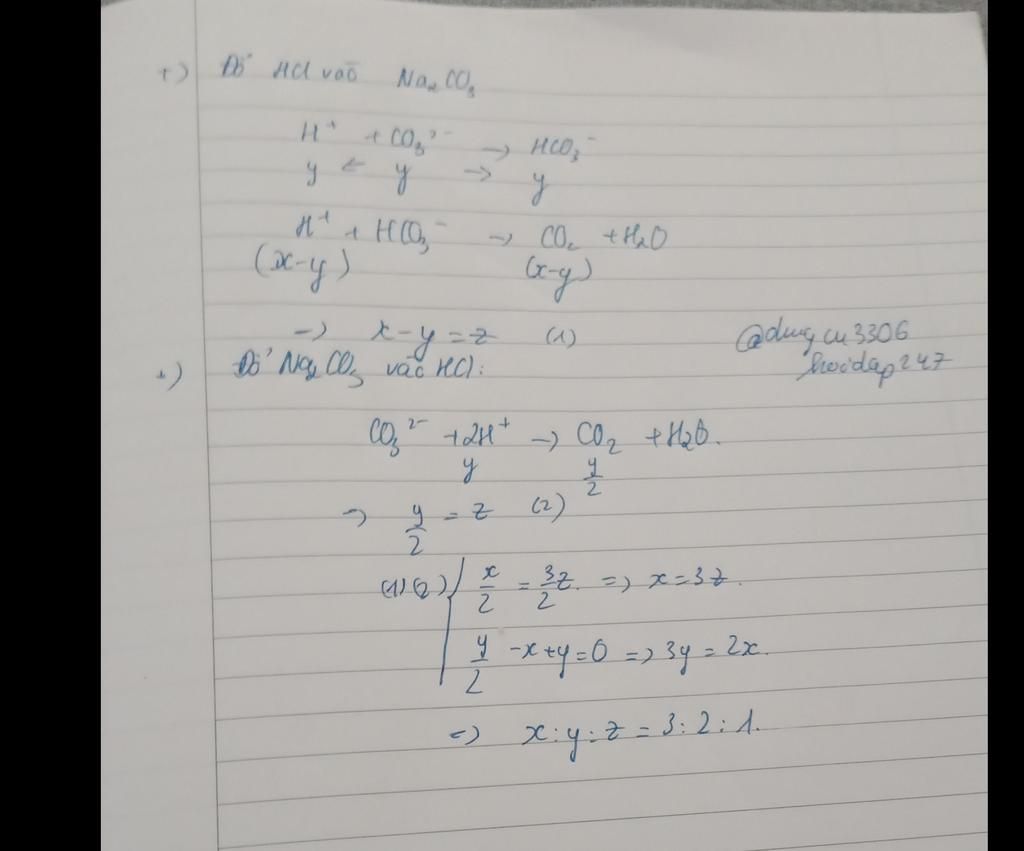 +) Đổ HCl vào Na₂CO₃
H⁺ + CO₃²⁻ → HCO₃⁻
y ← y → y
H⁺ + HCO₃⁻ → CO₂ + H₂O
(x-y) (x-y)
→ x-y = z (1)
@dungcu3306
hoidap247
+) Đổ Na₂CO₃ vào HCl:
CO₃²⁻ + 2H⁺ → CO₂ + H₂O.
y y/2
→ y/2 = z (2)
(1)(2) { x/2 = 3/2 z. => x = 3z.
y/2 -x+y=0 => 3y = 2x.
=> x:y:z = 3:2:1.